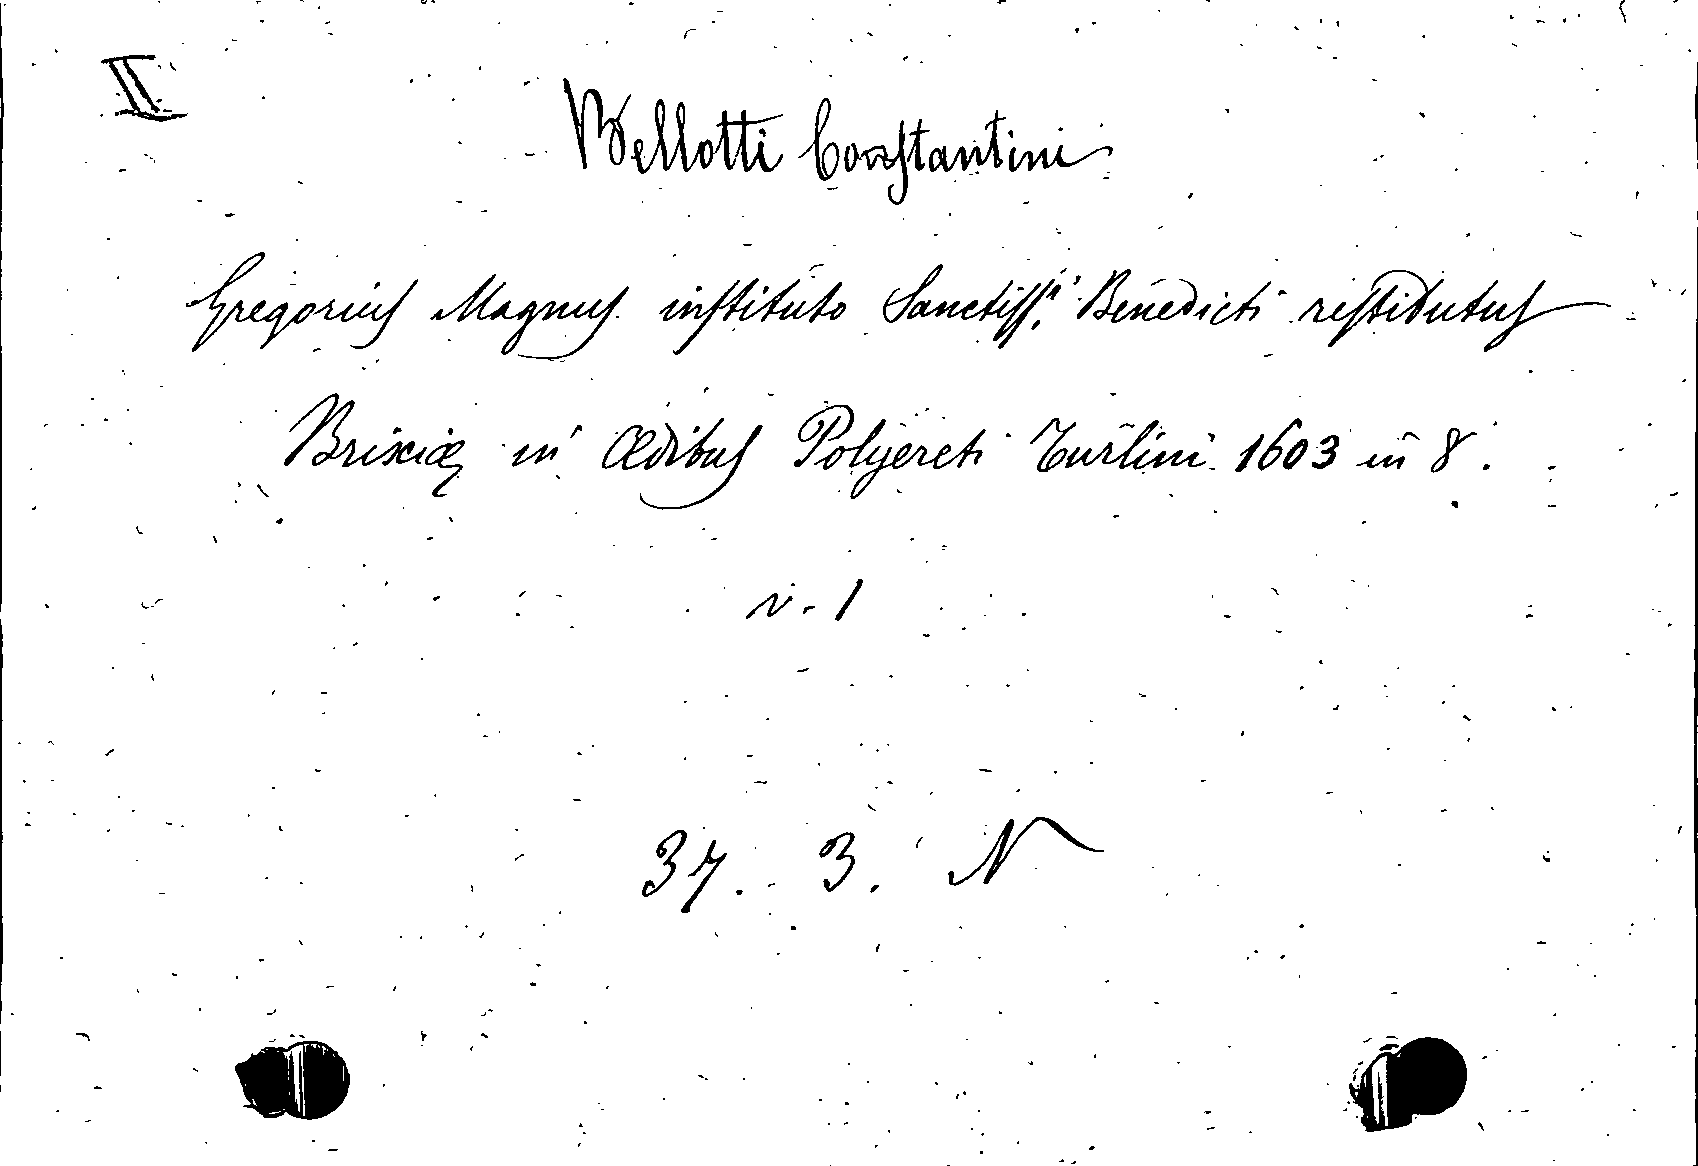 II
Bellotti Constantini
Gregorius Magnus instituto Sanctiss.i Benedicti restitutus
Brixiæ in Ædibus Polijereti Turlini 1603 in 8.
v. 1
37. 3. N